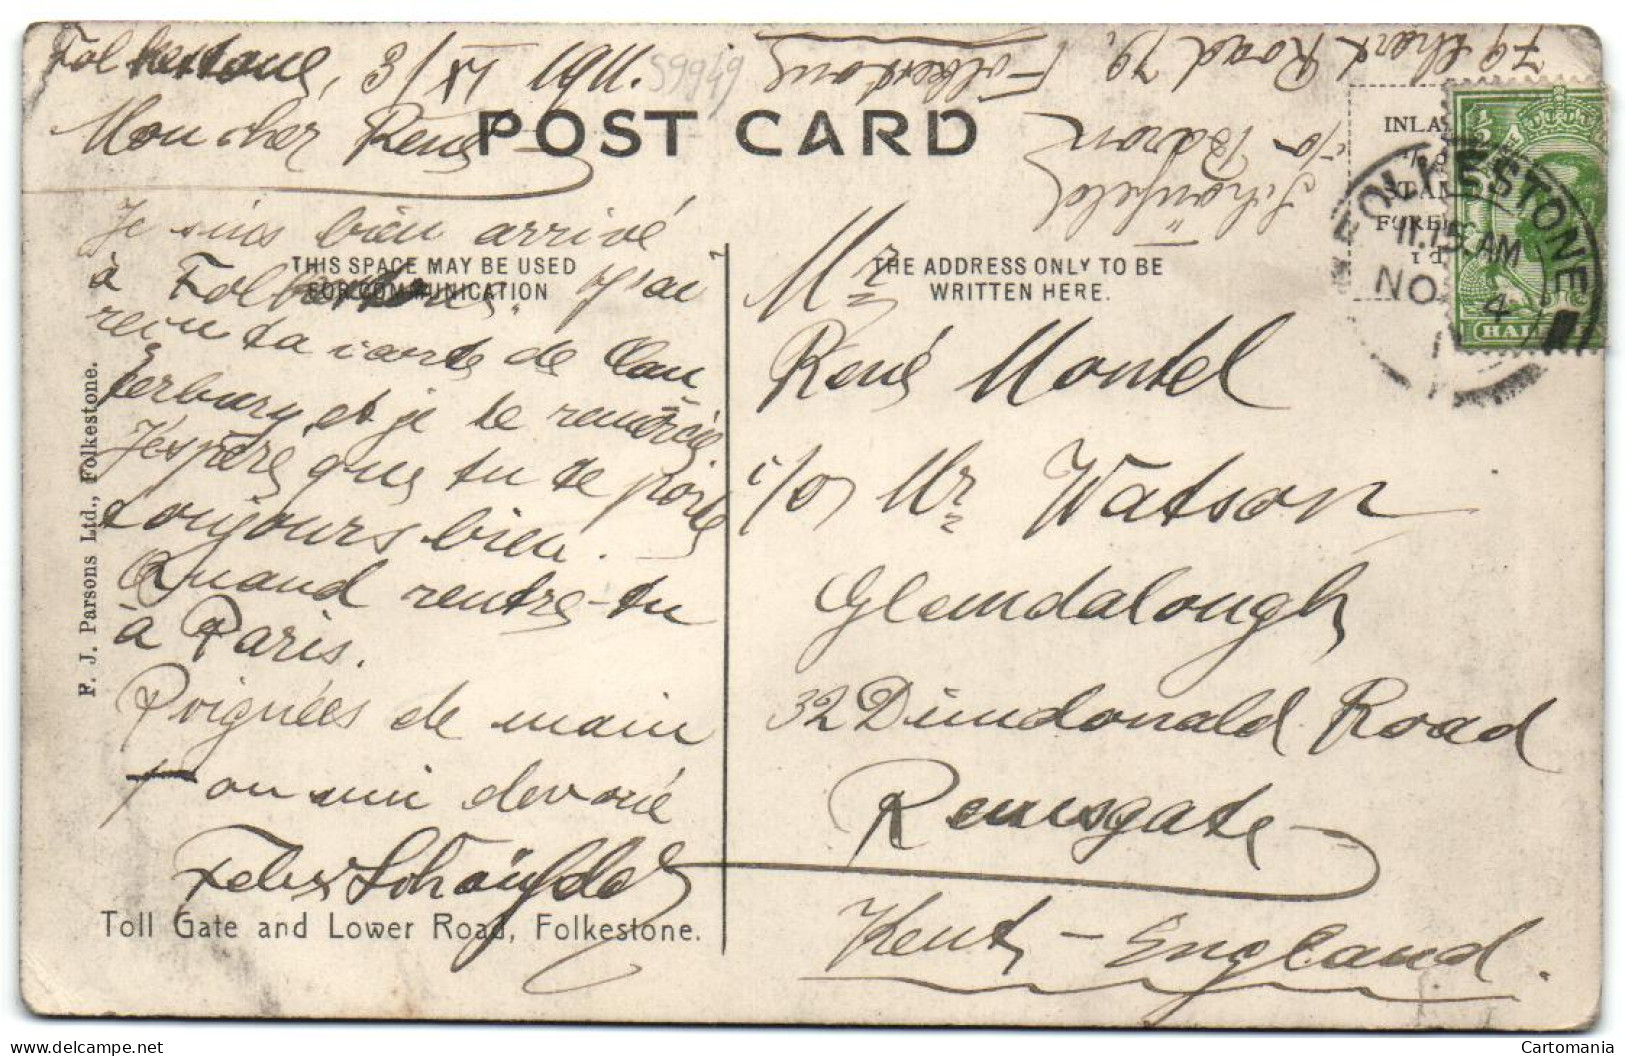 Folkestone, 3/XI 1911.
59949
Mon cher René
POST CARD
79 Road 79,
Folkestone
c/o Baron
Schönfeld
INLA
STAM
FORE
1d
FOLKESTONE
11.15 AM
NO 4
11
HAL
Je suis bien arrivé
THIS SPACE MAY BE USED
FOR COMMUNICATION
à Folkestone. J'ai
reçu ta carte de Can
terbury et je te remercie
J'espère que tu te portes
toujours bien.
Quand rentre-tu
à Paris.
Poignées de main
Ton ami devoué
Felix Schönfeld
Toll Gate and Lower Road, Folkestone.
F. J. Parsons Ltd., Folkestone.
THE ADDRESS ONLY TO BE
WRITTEN HERE.
Mr
René Montel
c/o Mr Watson
Glemdalough
32 Dundonald Road
Remsgate
Kent - England.
Cartomania